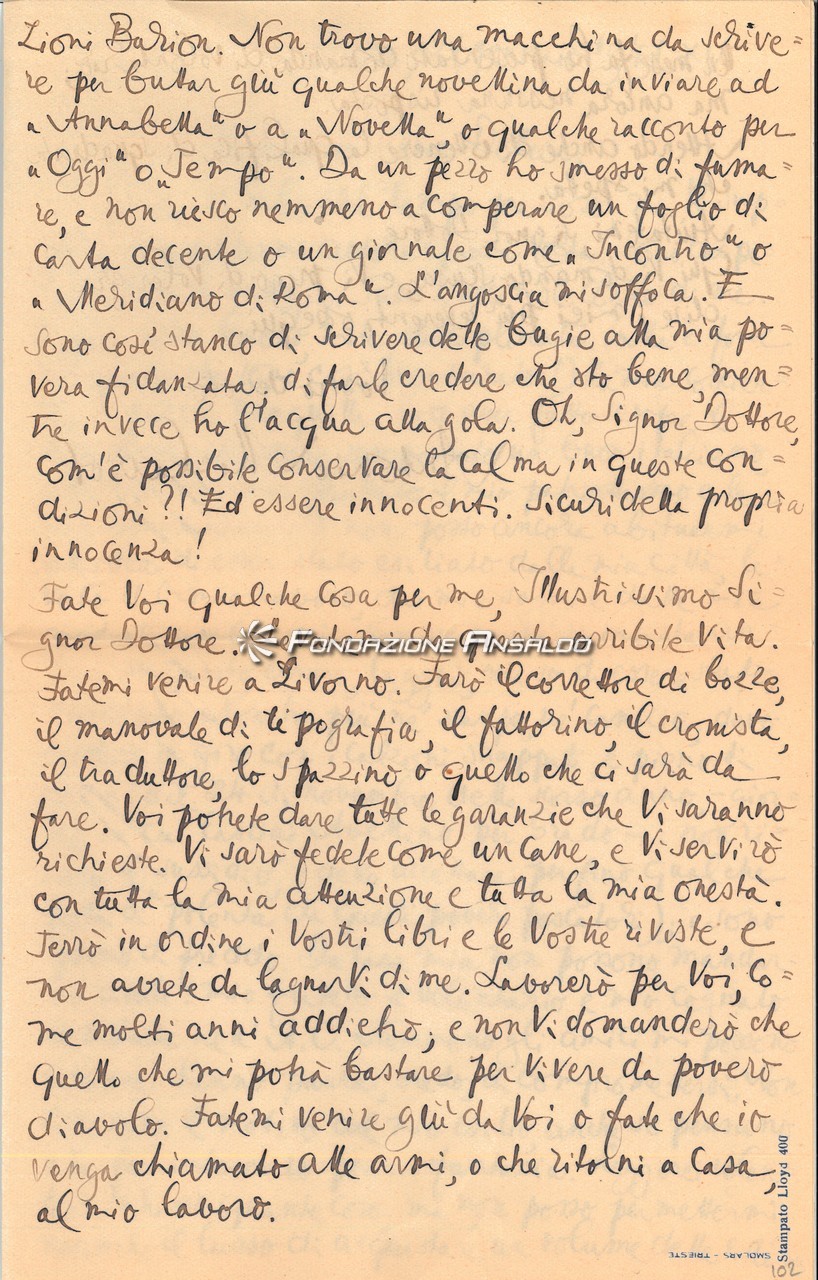 Zioni Barion. Non trovo una macchina da scrive=
re per buttar giù qualche novellina da inviare ad
„Annabella" o a „Novella", o qualche racconto per
„Oggi" o „Tempo". Da un pezzo ho smesso di fuma=
re, e non riesco nemmeno a comperare un foglio di
carta decente o un giornale come „Incontro" o
„Meridiano di Roma". L'angoscia mi soffoca. E
sono così stanco di scrivere delle bugie alla mia po=
vera fidanzata, di farle credere che sto bene, men=
tre invece ho l'acqua alla gola. Oh, Signor Dottore,
com'è possibile conservare la calma in queste con=
dizioni?! Ed essere innocenti. Sicuri della propria
innocenza!
Fate Voi qualche cosa per me, Illustrissimo Si=
gnor Dottore. da questa orribile vita.
FONDAZIONE ANSALDO
Fatemi venire a Livorno. Farò il correttore di bozze,
il manovale di tipografia, il fattorino, il cronista,
il traduttore, lo spazzino o quello che ci sarà da
fare. Voi potrete dare tutte le garanzie che Vi saranno
richieste. Vi sarò fedele come un cane, e Vi servirò
con tutta la mia attenzione e tutta la mia onestà.
Terrò in ordine i Vostri libri e le Vostre riviste, e
non avrete da lagnarVi di me. Lavorerò per Voi, co=
me molti anni addietro, e non Vi domanderò che
quello che mi potrà bastare per vivere da povero
diavolo. Fatemi venire giù da Voi o fate che io
venga chiamato alle armi, o che ritorni a casa,
al mio lavoro.
Stampato Lloyd 400
SMOLARS - TRIESTE
102